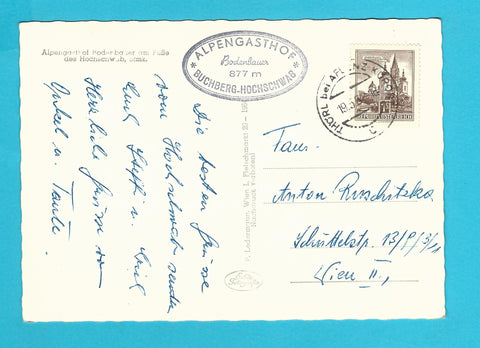 Alpengasthof Bodenbauer am Fuße
des Hochschwab, Stmk.
ALPENGASTHOF
Bodenbauer
877 m
BUCHBERG-HOCHSCHWAB
THÖRL bei AFLENZ
REPUBLIK ÖSTERREICH
Die besten Grüsse
vom Hochschwab senden
Emil Steffi u. Emil
Herzliche Grüsse von
Onkel u. Tante.
P. Ledermann, Wien I, Fleischmarkt 20
Nachdruck verboten
Fam.
Anton Ruschitzka
Schüttelstr.
Wien II.,